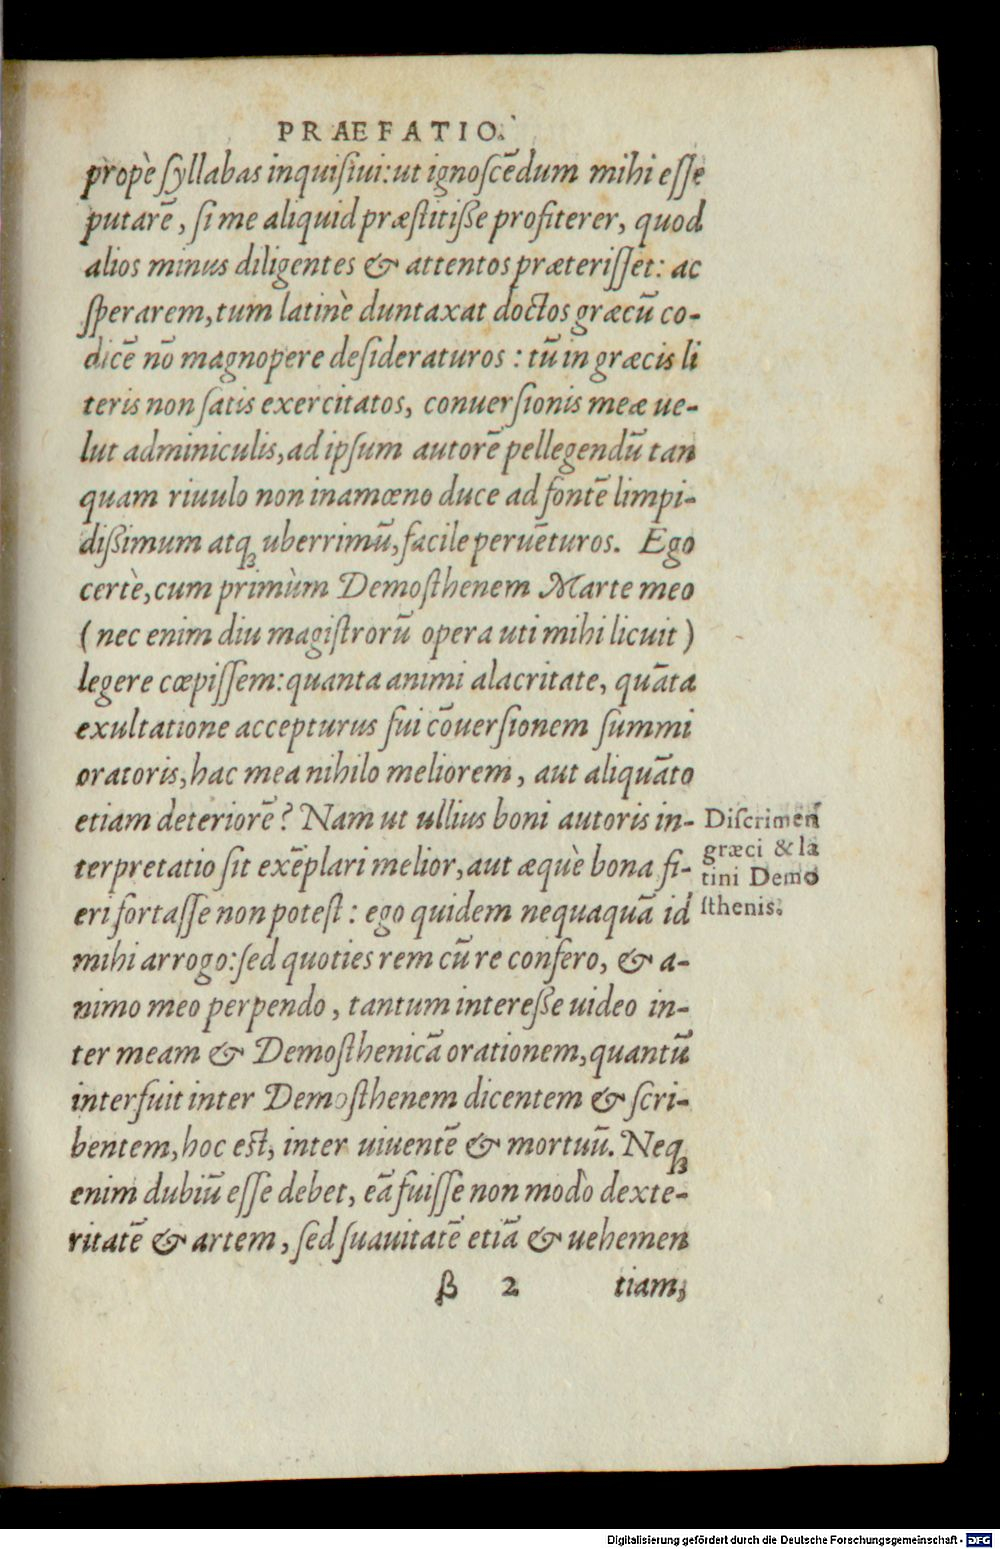 PRAEFATIO.
propè ſyllabas inquiſiui: ut ignoſcēdum mihi eſſe
putarē, ſi me aliquid præſtitiſſe profiterer, quod
alios minus diligentes & attentos præteriſſet: ac
ſperarem, tum latinè duntaxat doctos græcū co-
dicē nō magnopere deſideraturos: tū in græcis li
teris non ſatis exercitatos, conuerſionis meæ ue-
lut adminiculis, ad ipſum autorē pellegendū tan
quam riuulo non inamœno duce ad fontē limpi-
dißimum atqꝫ uberrimū, facile peruēturos. Ego
certè, cum primùm Demoſthenem Marte meo
(nec enim diu magiſtrorū opera uti mihi licuit)
legere cœpiſſem: quanta animi alacritate, quāta
exultatione accepturus fui cōuerſionem ſummi
oratoris, hac mea nihilo meliorem, aut aliquāto
etiam deteriorē? Nam ut ullius boni autoris in-
terpretatio ſit exēplari melior, aut æquè bona fi-
eri fortaſſe non poteſt: ego quidem nequaquā id
mihi arrogo: ſed quoties rem cū re confero, & a-
nimo meo perpendo, tantum intereße uideo in-
ter meam & Demoſthenicā orationem, quantū
interfuit inter Demoſthenem dicentem & ſcri-
bentem, hoc eſt, inter uiuentē & mortuū. Neqꝫ
enim dubiū eſſe debet, eā fuiſſe non modò dexte-
ritatē & artem, ſed ſuauitatē etiā & uehemen
β 2 tiam,
Diſcrimen
græci & la
tini Demo
ſthenis.
Digitalisierung gefördert durch die Deutsche Forschungsgemeinschaft - DFG